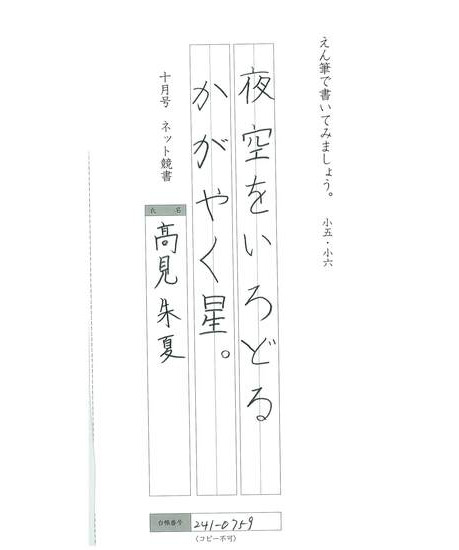 えん筆で書いてみましょう。 小五・小六
夜空をいろどる
かがやく星。
十月号 ネット競書
氏名
髙見朱夏
台帳番号
241-0759
(コピー不可)